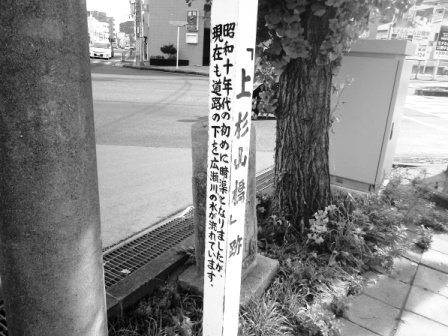 「上杉山橋」跡
昭和十年代の初めに暗渠となりましたが、
現在も道路の下を広瀬川の水が流れています。